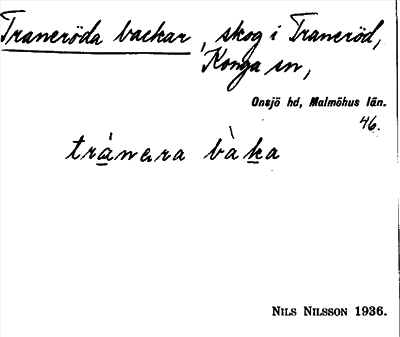 Traneröda backar, skog i Traneröd,
Konga sn,
Onsjö hd, Malmöhus län.
46.
trànara bàka
NILS NILSSON 1936.